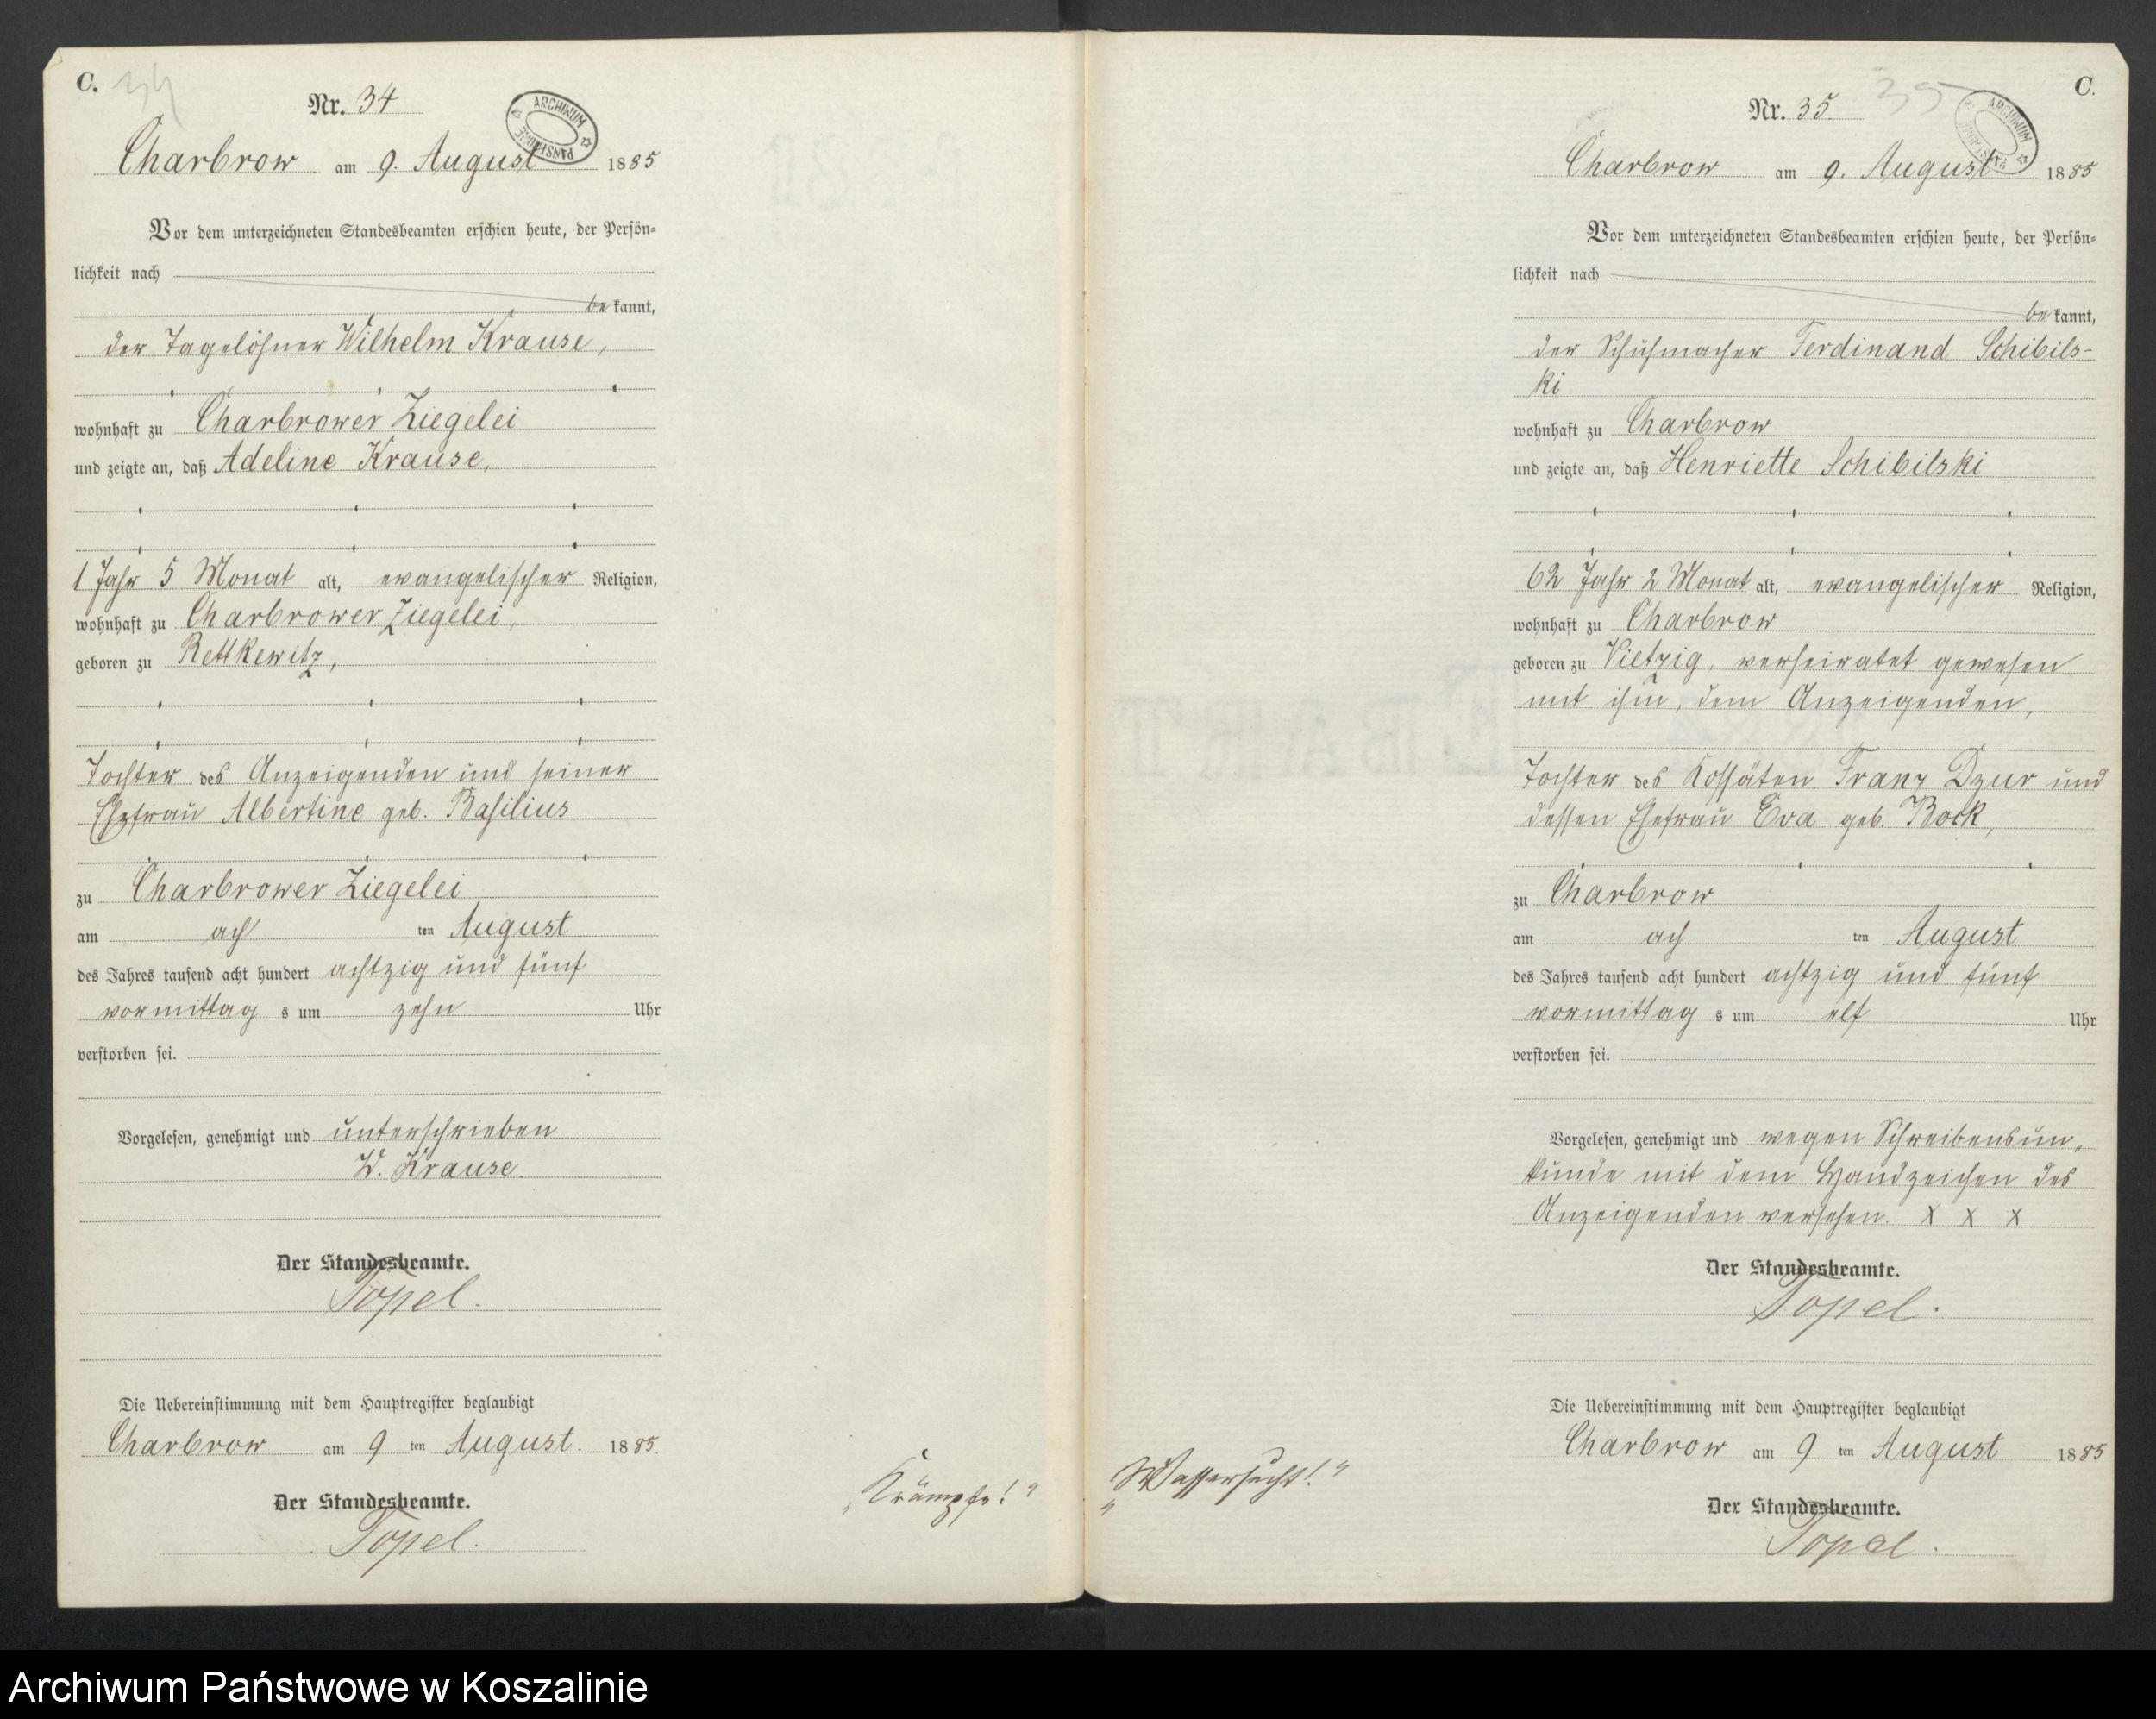 C. 34
Nr. 34
ARCHIWUM PAŃSTWOWE
Charbrow am 9. August 1885
Vor dem unterzeichneten Standesbeamten erschien heute, der Persön=
lichkeit nach
be kannt,
der Tagelöhner Wilhelm Krause,
wohnhaft zu Charbrower Ziegelei
und zeigte an, daß Adeline Krause,
1 Jahr 5 Monat alt, evangelischer Religion,
wohnhaft zu Charbrower Ziegelei,
geboren zu Rettkewitz,
Tochter des Anzeigenden und seiner
Ehefrau Albertine geb. Basilius
zu Charbrower Ziegelei
am ach ten August
des Jahres tausend acht hundert achtzig und fünf
vormittag s um zehn Uhr
verstorben sei.
Vorgelesen, genehmigt und unterschrieben
W. Krause.
Der Standesbeamte.
Topel.
Die Uebereinstimmung mit dem Hauptregister beglaubigt
Charbrow am 9 ten August. 1885.
Der Standesbeamte.
Topel.
„Krämpfe!“
C.
35
Nr. 35.
ARCHIWUM PAŃSTWOWE
Charbrow am 9. August 1885
Vor dem unterzeichneten Standesbeamten erschien heute, der Persön=
lichkeit nach
be kannt,
der Schuhmacher Ferdinand Schibils-
ki
wohnhaft zu Charbrow
und zeigte an, daß Henriette Schibilski
62 Jahr 2 Monat alt, evangelischer Religion,
wohnhaft zu Charbrow
geboren zu Vietzig, verheiratet gewesen
mit ihm, dem Anzeigenden,
Tochter des Kossäten Franz Dzur und
dessen Ehefrau Eva geb. Bock,
zu Charbrow
am ach ten August
des Jahres tausend acht hundert achtzig und fünf
vormittag s um elf Uhr
verstorben sei.
Vorgelesen, genehmigt und wegen Schreibensun„
kunde mit dem Handzeichen des
Anzeigenden versehen. X X X
Der Standesbeamte.
Topel.
Die Uebereinstimmung mit dem Hauptregister beglaubigt
Charbrow am 9 ten August 1885
Der Standesbeamte.
Topel.
„Wassersucht!“
Archiwum Państwowe w Koszalinie